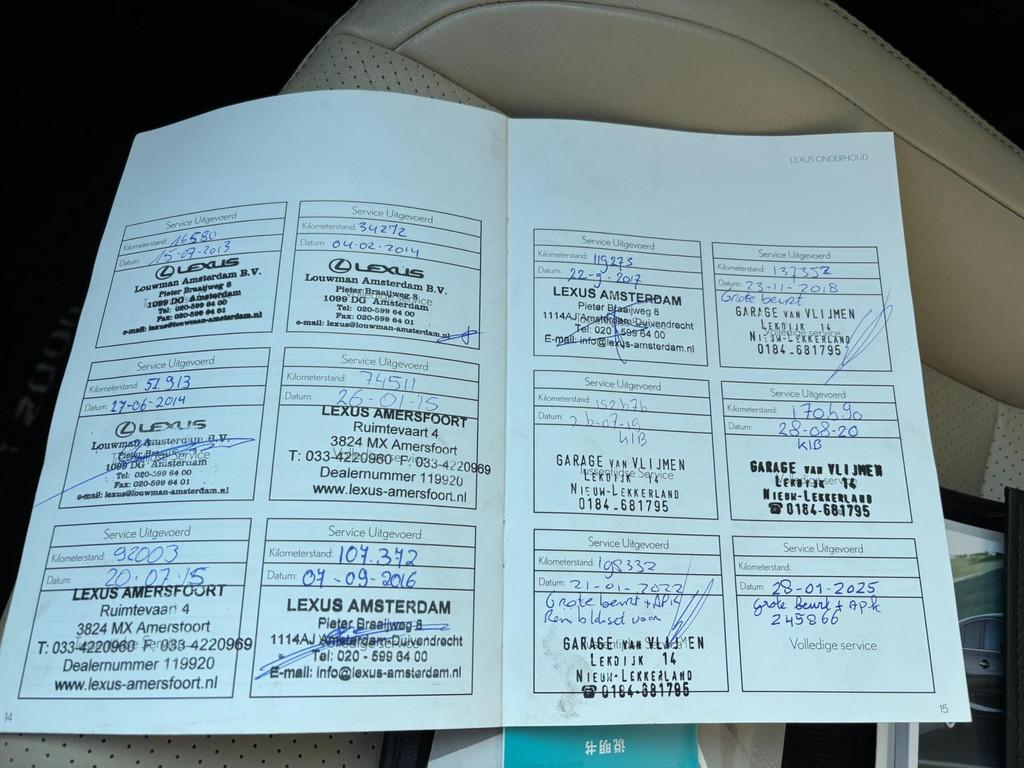 LEXUS ONDERHOUD
Service Uitgevoerd
Kilometerstand: 16580
Datum: 15-07-2013
LEXUS
Louwman Amsterdam B.V.
Pieter Braaijweg 8
1099 DG Amsterdam
Tel: 020-599 64 00
Fax: 020-599 64 01
e-mail: lexus@louwman-amsterdam.nl
Service Uitgevoerd
Kilometerstand: 34272
Datum: 04-02-2014
LEXUS
Louwman Amsterdam B.V.
Pieter Braaijweg 8
1099 DG Amsterdam
Tel: 020-599 64 00
Fax: 020-599 64 01
e-mail: lexus@louwman-amsterdam.nl
Service Uitgevoerd
Kilometerstand: 51913
Datum: 17-06-2014
LEXUS
Louwman Amsterdam B.V.
Pieter Braaijweg 8
1099 DG Amsterdam
Tel: 020-599 64 00
Fax: 020-599 64 01
e-mail: lexus@louwman-amsterdam.nl
Service Uitgevoerd
Kilometerstand: 74511
Datum: 26-01-15
LEXUS AMERSFOORT
Ruimtevaart 4
3824 MX Amersfoort
T: 033-4220960 F: 033-4220969
Dealernummer 119920
www.lexus-amersfoort.nl
Service Uitgevoerd
Kilometerstand: 92003
Datum: 20-07-15
LEXUS AMERSFOORT
Ruimtevaart 4
3824 MX Amersfoort
T: 033-4220960 F: 033-4220969
Dealernummer 119920
www.lexus-amersfoort.nl
Service Uitgevoerd
Kilometerstand: 107.372
Datum: 07-09-2016
LEXUS AMSTERDAM
Pieter Braaijweg 8
1114AJ Amsterdam-Duivendrecht
Tel: 020 - 599 64 00
E-mail: info@lexus-amsterdam.nl
14
Service Uitgevoerd
Kilometerstand: 119273
Datum: 22-9-2017
LEXUS AMSTERDAM
Pieter Braaijweg 8
1114AJ Amsterdam-Duivendrecht
Tel: 020 - 599 64 00
E-mail: info@lexus-amsterdam.nl
Service Uitgevoerd
Kilometerstand: 137352
Datum: 23-11-2018
Grote beurt
Volledige service
GARAGE VAN VLIJMEN
LEKDIJK 14
NIEUW-LEKKERLAND
0184-681795
Service Uitgevoerd
Kilometerstand:
Datum:
KIB
GARAGE VAN VLIJMEN
LEKDIJK 14
NIEUW-LEKKERLAND
0184-681795
Service Uitgevoerd
Kilometerstand: 170690
Datum: 28-08-20
KIB
GARAGE VAN VLIJMEN
LEKDIJK 14
NIEUW-LEKKERLAND
☎ 0184-681795
Service Uitgevoerd
Kilometerstand: 198332
Datum: 21-01-2022
Grote beurt + APK
Remblokset voor
GARAGE VAN VLIJMEN
LEKDIJK 14
NIEUW-LEKKERLAND
☎ 0184-681795
Service Uitgevoerd
Kilometerstand:
Datum: 28-01-2025
Grote beurt + APK
245866
Volledige service
15
说明书